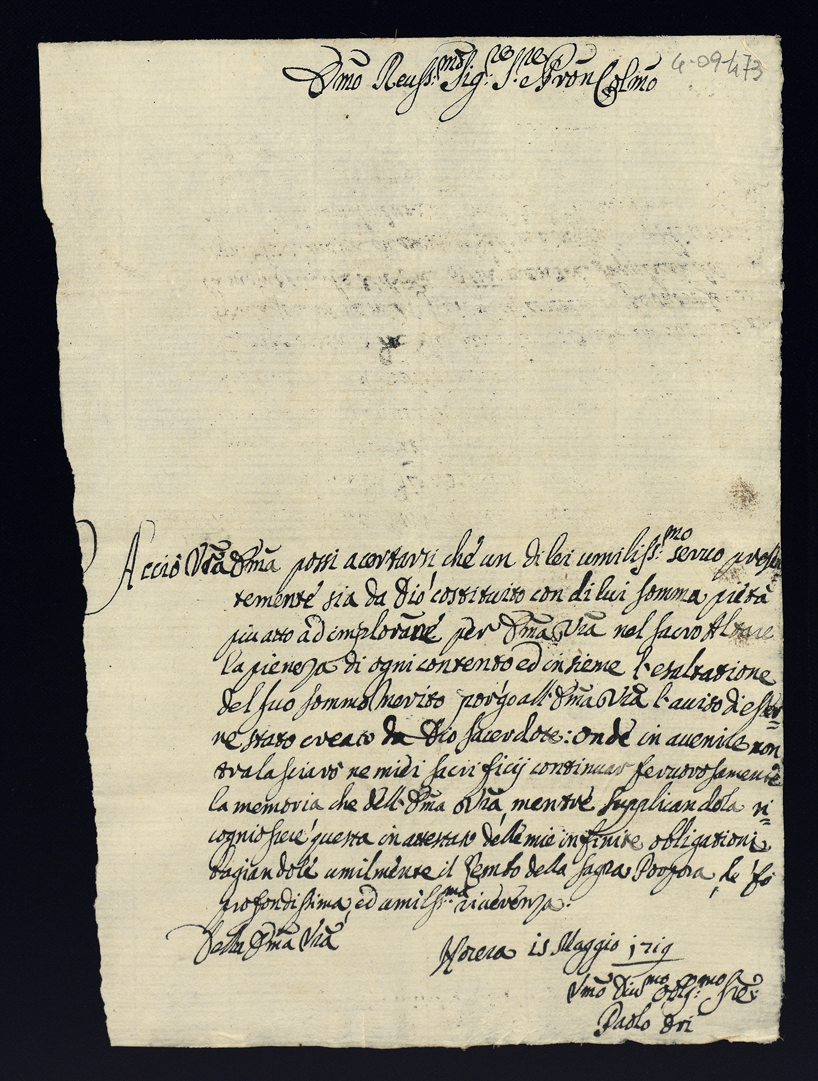 4-09-473
Emo Reuss:mo Sig:re S:re Pron Colmo
Acciò Vra Ema possi acertarsi che un di lei umiliss:mo seruo presen
temente sia da Dio costituito con di lui somma pietà
piu atto ad implorare per Ema Vra nel sacro Altare
la pieneza di ogni contento ed insieme l'esaltatione
del suo sommo Merito porgo all'Ema Vra l'auiso di esser
ne stato creato da Dio sacerdote: onde in auenire non
tralasciarò ne miei sacrificij continuar feruorosamente
la memoria che dell'Ema Vra, mentre supplicandola ri
cognoscere questa in attestato delle mie infinite obligationi
bagiandole umilmente il lembo della sagra Porpora, le fo
profondissima, ed umiliss:ma riuerenza.
Della Ema Vra
15 Maggio 1719
Vmo Diumo Oblig:mo
Paolo Ori